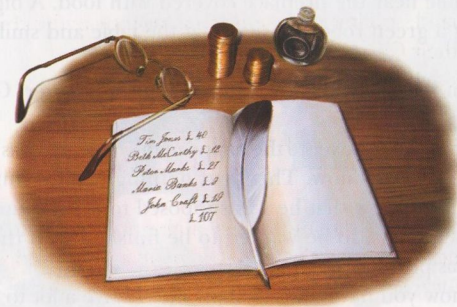 Tim Jones £ 40
Beth McCarthy £ 12
Peter Marks £ 27
Marie Banks £ 9
John Craft £ 19
£ 107